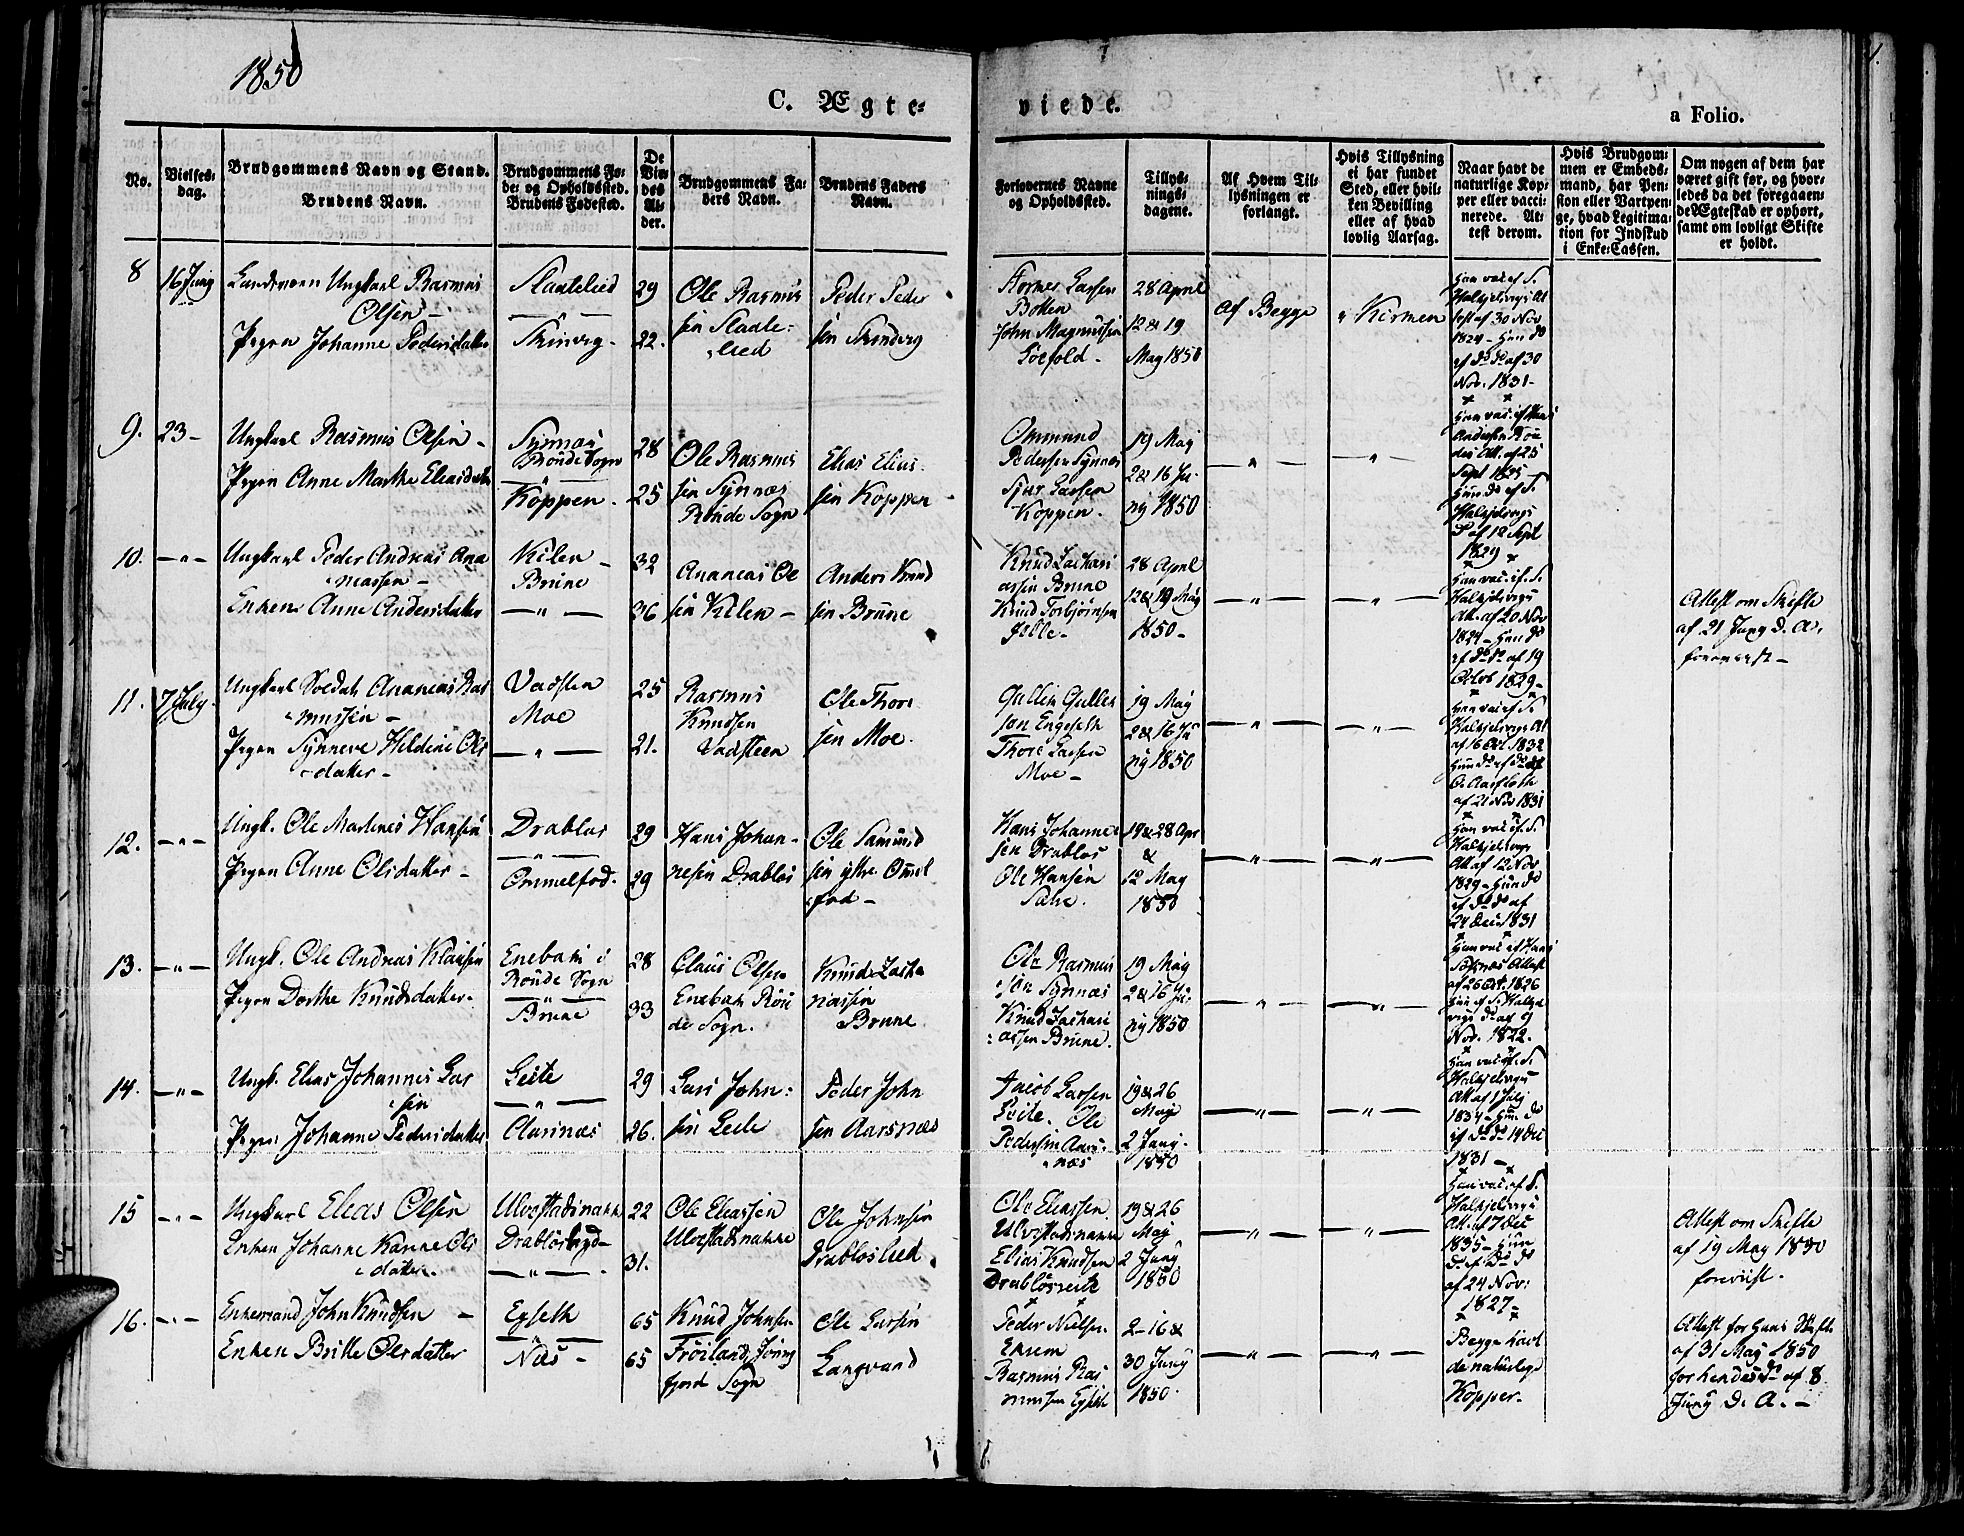 1850
C. Ægte-
viede.
a Folio.
No.
Vielses-
dag.
Brudgommens Navn og Stand.
Brudens Navn.
Brudgommens Fø-
de- og Opholdssted.
Brudens Fødested.
De
Vie-
des
Al-
der.
Brudgommens Fa-
ders Navn.
Brudens Faders
Navn.
Forlovernes Navne
og Opholdssted.
Tillys-
nings-
dagene.
Af Hvem Til-
lysningen er
forlangt.
Hvis Tillysning
ei har fundet
Sted, eller hvil-
ken Bevilling
eller af hvad
lovlig Aarsag.
Naar havt de
naturlige Kop-
per eller vacci-
nerede. At-
test derom.
Hvis Brudgom-
men er Embeds-
mand, har Pen-
sion eller Vartpen-
ge, hvad Legitima-
tion for Indskud
i Enke-Cassen.
Om nogen af dem har
været gift før, og hvor-
ledes da det foregaaen-
de Ægteskab er ophørt,
samt om lovligt Skifte
er holdt.
8
16 Juny
Landsvern Ungkarl Rasmus
Olsen -
Pigen Johanne Pedersdatter
29
22.
Ole Rasmus
sen
lied
Peder Peder
sen
Larsen
John Magnusen
28 April
12 & 19
May 1850
Af Begge
" Kirken
Han vac. af S.
Att
test af 30 Nov
1824 - Hun do
af do do af 30
Nov. 1831 -
9.
23 -
Ungkarl Rasmus Olsen -
Pigen Anne Marthe Eliasdatter
Synnæs
Rønde Sogn
Koppen.
28
25
Ole Rasmus
sen Synnæs
Rønde Sogn
Elias Elias
sen Koppen
Ommund
Pedersen Synnæs
Sjur Larsen
Koppen.
19 May
2 & 16 Ju-
ny 1850
Han vac. af Hans
Andersen
Att. af 25
Sept 1825
Hun do af S.
Do af 12 Sept
1829
10.
Ungkarl Peder Andreas Ana
niassen -
Enken Anne Andersdatter
Kilen -
Brune
32
36
Ananias Ole
sen Kilen -
Anders Knud
sen Brune
Knud Zachari
assen Brune
Knud Torbjørnsen
28 April
12 & 19 May
1850 -
Han vac. af S.
Att. af 20 Nov
1824 - Hun do
af do do af 19
Octob 1829 -
Attest om Skifte
af 21 Juny d. A.
forevist -
11.
7 July
Ungkarl Soldat Ananias Ras
mussen -
Pigen Synneve Heldine Ols
datter -
Vadsten
Moe
25
21.
Rasmus
Knudsen
Vadsteen
Ole Thore
sen Moe.
Gullik Gullik
sen Engeseth
Thore Larsen
Moe -
19 May
2 & 16 Ju
ny 1850
Han vac. af S.
af 16 Oct. 1832
Hun do af
af 21 Nov 1831
12.
Ungk. Ole Martinus Hansen
Pigen Anne Olsdatter -
Drabløs
Ommelfod.
29
29
Hans Johan-
nesen Drabløs
Ole Samund
sen ytre Omel
fod -
Hans Johannes
sen Drabløs
Ole Hansen
19 & 28 Apr
&
12 May
1850
Han vac. af S.
Att af 12 Nov
1829 - Hun do
af do do af
24 Dec. 1831
13.
Ungk. Ole Andreas Klausen
Pigen Dorthe Knudsdatter -
Rønde Sogn
Brune
28
33
Claus Olsen
de Sogn.
Knud Zacha
riassen
Brune
Ole Rasmus
sen Synnæs
Knud Zachari
assen Brune.
19 May
2 & 16 Ju-
ny 1850
Attest
af 26 Oct. 1826
Nov. 1822.
14.
Ungk. Elias Johannes Lar
sen
Pigen Johanne Pedersdatter
Leite
29
26.
Lars John-
sen Leite
Peder John
sen Aarsnæs
Jacob Larsen
Leite. Ole
Pedersen Aars-
næs
19 & 26
May
2 Juny.
1850
Han vac. af S.
Att af 1 July
1834 - Hun do
af do do 14 Dec
1831 -
15
Ungkarl Elias Olsen
Enken Johanne Karine Ols
datter.
Ulvestadsnakke
22
31.
Ole Eliassen
Ulvestadsnakke
Ole Johnsen
Drabløslied
Ole Eliassen
Ulvestadsnakke
Elias Knudsen
19 & 26
May
2 Juny
1850
Han vac. af S.
Att. af 7 Dec
1835 - Hun
do af do do
af 24 Nov:
1827 -
Attest om Skifte
af 19 May 1850
forevist.
16.
Enkemand John Knudsen -
Enken Britte Olsdatter
Egseth
Næs -
65
65
Knud Johnsen
Frøiland, Jøring
fjord Sogn
Ole Larsen
Langvand
Peder Nielsen
Ekrem
Rasmus Ras
mussen Egseth
2 - 16 &
30 Juny
1850.
Begge havt
de naturlige
Kopper.
Attest for Hans Skifte
af 31 May 1850
for hendes do af 8
Juny d. A. -